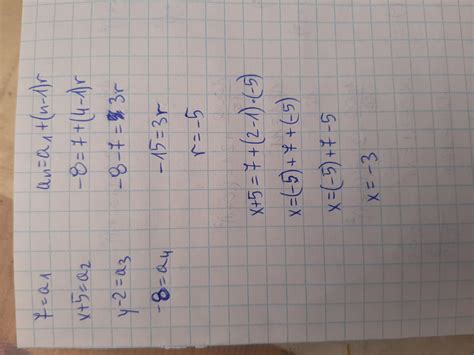 7=a1
x+5=a2
y-2=a3
-8=a4
an=a1+(n-1)r
-8=7+(4-1)r
-8-7=3r
-15=3r
r=-5
x+5=7+(2-1)·(-5)
x=(-5)+7+(-5)
x=(-5)+7-5
x=-3